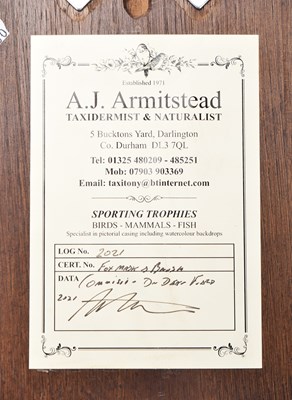 Established 1971
A.J. Armitstead
TAXIDERMIST & NATURALIST
5 Bucktons Yard, Darlington
Co. Durham DL3 7QL
Tel: 01325 480209 - 485251
Mob: 07903 903369
Email: taxitony@btinternet.com
SPORTING TROPHIES
BIRDS - MAMMALS - FISH
Specialist in pictorial casing including watercolour backdrops
LOG No. 2021
CERT. No. FOX MASK & BRUSH
DATA
2021